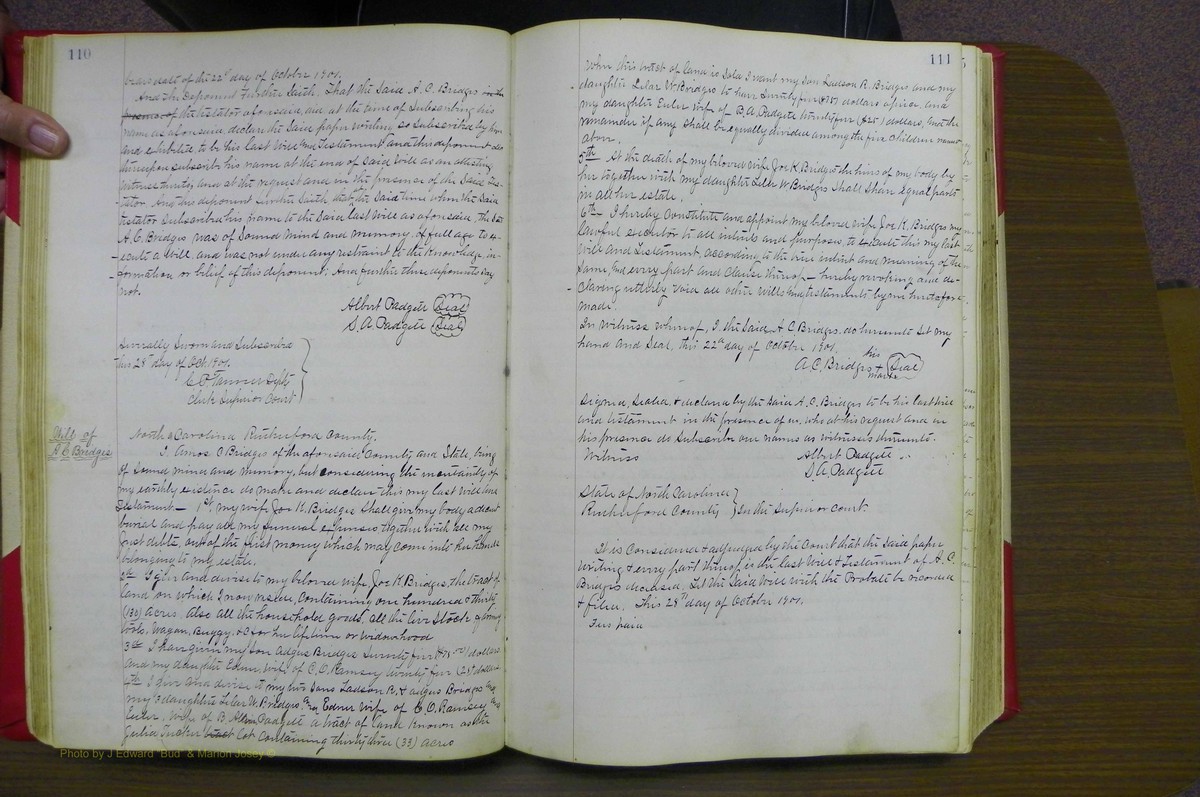 110
bears date of the 22d day of October 1901.
And the deponent further saith, That the said A. C. Bridges in the
presence of the testator aforesaid, did at the time of subscribing his
name as aforesaid, declare the said paper writing so subscribed by him
and exhibited to be his last Will and Testament and this deponent did
thereupon subscribe his name at the end of said Will as an attesting
witness thereto, and at the request and in the presence of the said Tes-
tator. And this deponent further saith that at the said time when the said
testator subscribed his name to the said last Will as aforesaid, the said
A. C. Bridges was of sound mind and memory, of full age to ex-
ecute a Will, and was not under any restraint to the knowledge, in-
formation or belief of this deponent; And further these deponents say
not.
Albert Padgett Seal
S. A. Padgett Seal
Severally Sworn and Subscribed
this 28th day of Oct. 1901.
Tanner Dpty
Clerk Superior Court
Will of
A C Bridges
North Carolina Rutherford County.
I, Amos C Bridges of the aforesaid County and State, being
of sound mind and memory, but considering the uncertainty of
my earthly existence do make and declare this my last Will and
Testament – 1st my wife Joe K. Bridges shall give my body a decent
burial and pay all my funeral expenses together with all my
just debts, out of the first money which may come into her hands
belonging to my estate.
2nd I give and devise to my beloved wife Joe K Bridges, the tract of
land on which I now reside, containing one hundred & thirty
(130) acres. Also all the household goods, all the live stock & farming
tools, Wagon, Buggy, &c for her lifetime or widowhood
3rd I have given my son Adges Bridges Seventy five dollars
and my daughter Edner, wife of C. O. Ramsey twenty five (25) dollars
4th I give and devise to my two sons Ladson R. & Adges Bridges and
my 3 daughters Lelar W. Bridges and Edner wife of C. O. Ramsey and
Euler, wife of B. Padgett a tract of land known as the
Julia Lot Containing thirty three (33) acres
111
When this tract of land is sold I want my son Ladson R. Bridges and my
daughter Lelar W Bridges to have Seventy five dollars apiece, and
my daughter Euler wife of B. A. Padgett twenty five ($25) dollars, and the
remainder if any shall be equally divided among the five children named
above.
5th At the death of my beloved wife Joe K. Bridges the heirs of my body by
her together with my daughter Lelar W Bridges shall share equal parts
in all her estate.
6th I hereby constitute and appoint my beloved wife Joe K. Bridges my
lawful executor to all intents and purposes, to execute this my last
will and testament, according to the true intent and meaning of the
same, and every part and clause thereof – hereby revoking and de-
claring utterly void all other wills and testaments by me heretofore
made.
In Witness whereof, I, the said A C Bridges, do hereunto set my
hand and Seal, this 22nd day of October 1901.
A. C. Bridges his + mark Seal
Signed, Sealed, & declared by the said A. C. Bridges to be his last will
and testament in the presence of us, who at his request and in
his presence do subscribe our names as witnesses thereunto.
Witness Albert Padgett
S. A. Padgett
State of North Carolina
Rutherford County } In the Superior Court.
It is considered & adjudged by the Court that the said paper
writing & every part thereof is the last Will & Testament of A. C.
Bridges deceased. Let the said Will with the Probate be recorded
& filed. This 28th day of October 1901.
Fees paid
Photo by J Edward "Bud" & Marion Josey ©